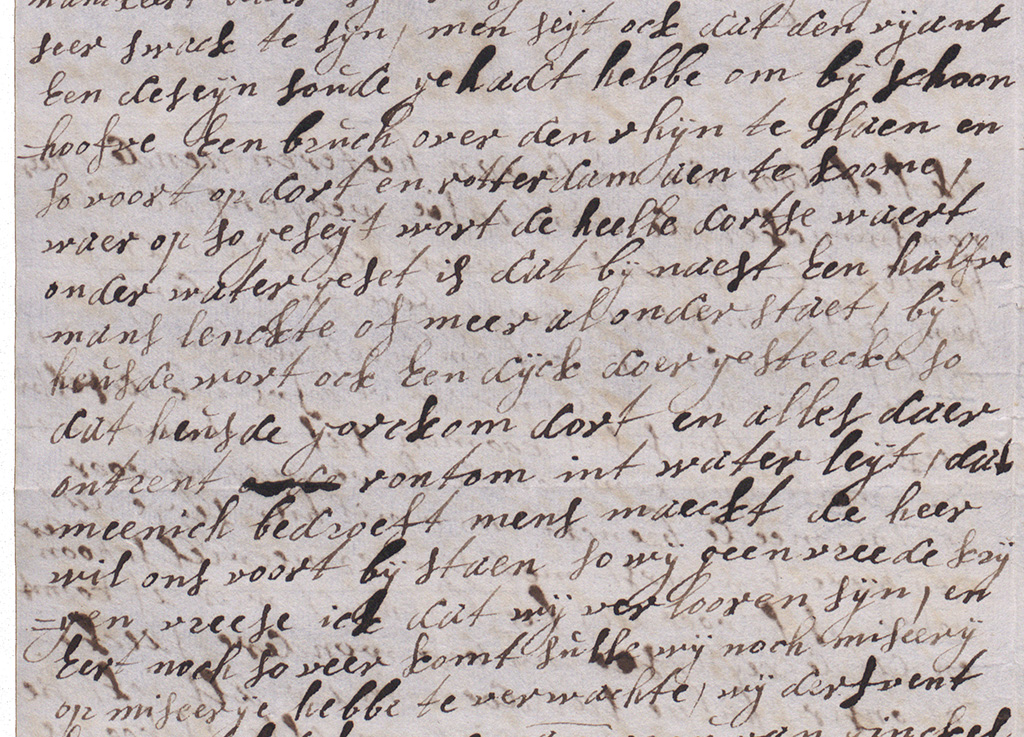 seer swack te syn, men seyt ock dat den vyant
Een deseyn soude gehadt hebbe om by schoon
=hoofve Een bruch over den rhyn te slaen en
so voort op dort en rotterdam aen te koome,
waer op so geseyt wort de heelle dortse waert
onder water geset is dat by naest Een halfve
mans lenckte of meer al onder staet, by
heusde wort ock Een dyck doer gesteecke so
dat heusde gorckom dort en alles daer
ontrent rontom int water leyt, dat
meenich bedroeft mens maeckt de heer
wil ons voort by staen so wy geen vreede kry
=gen vreese ick dat wy verlooren syn, en
Eert noch so veer komt sulle wy noch miseery
op miseerye hebbe te verwachte, wy